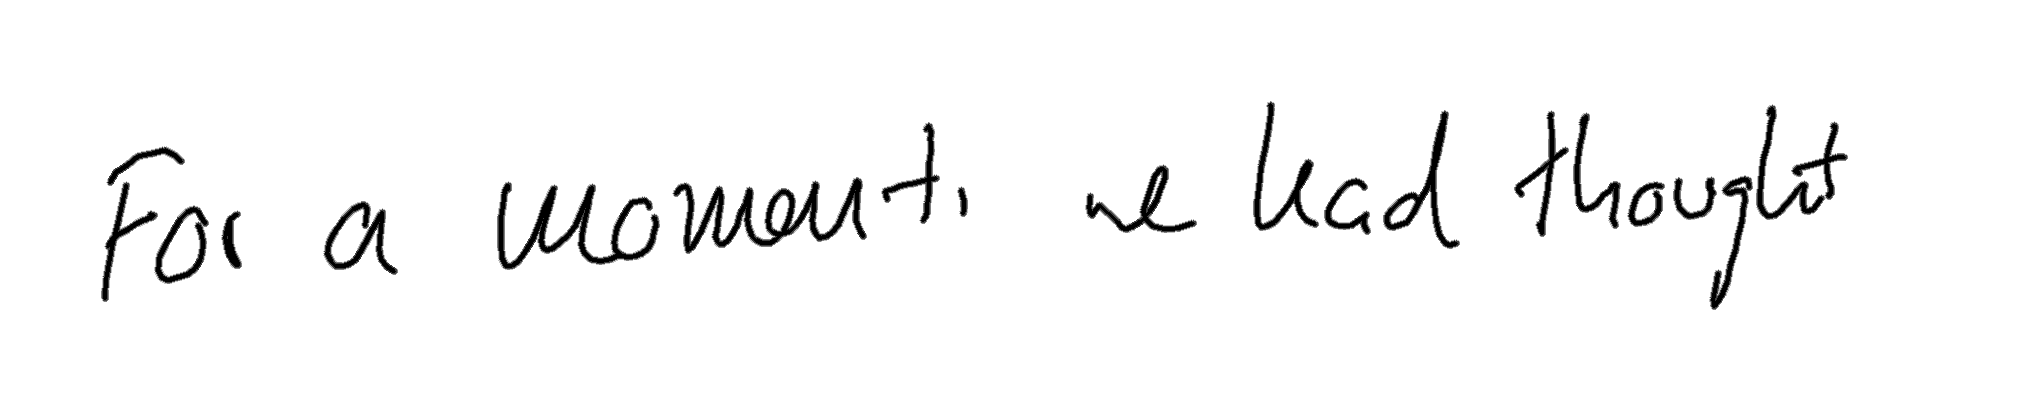 For a moment, we had thought